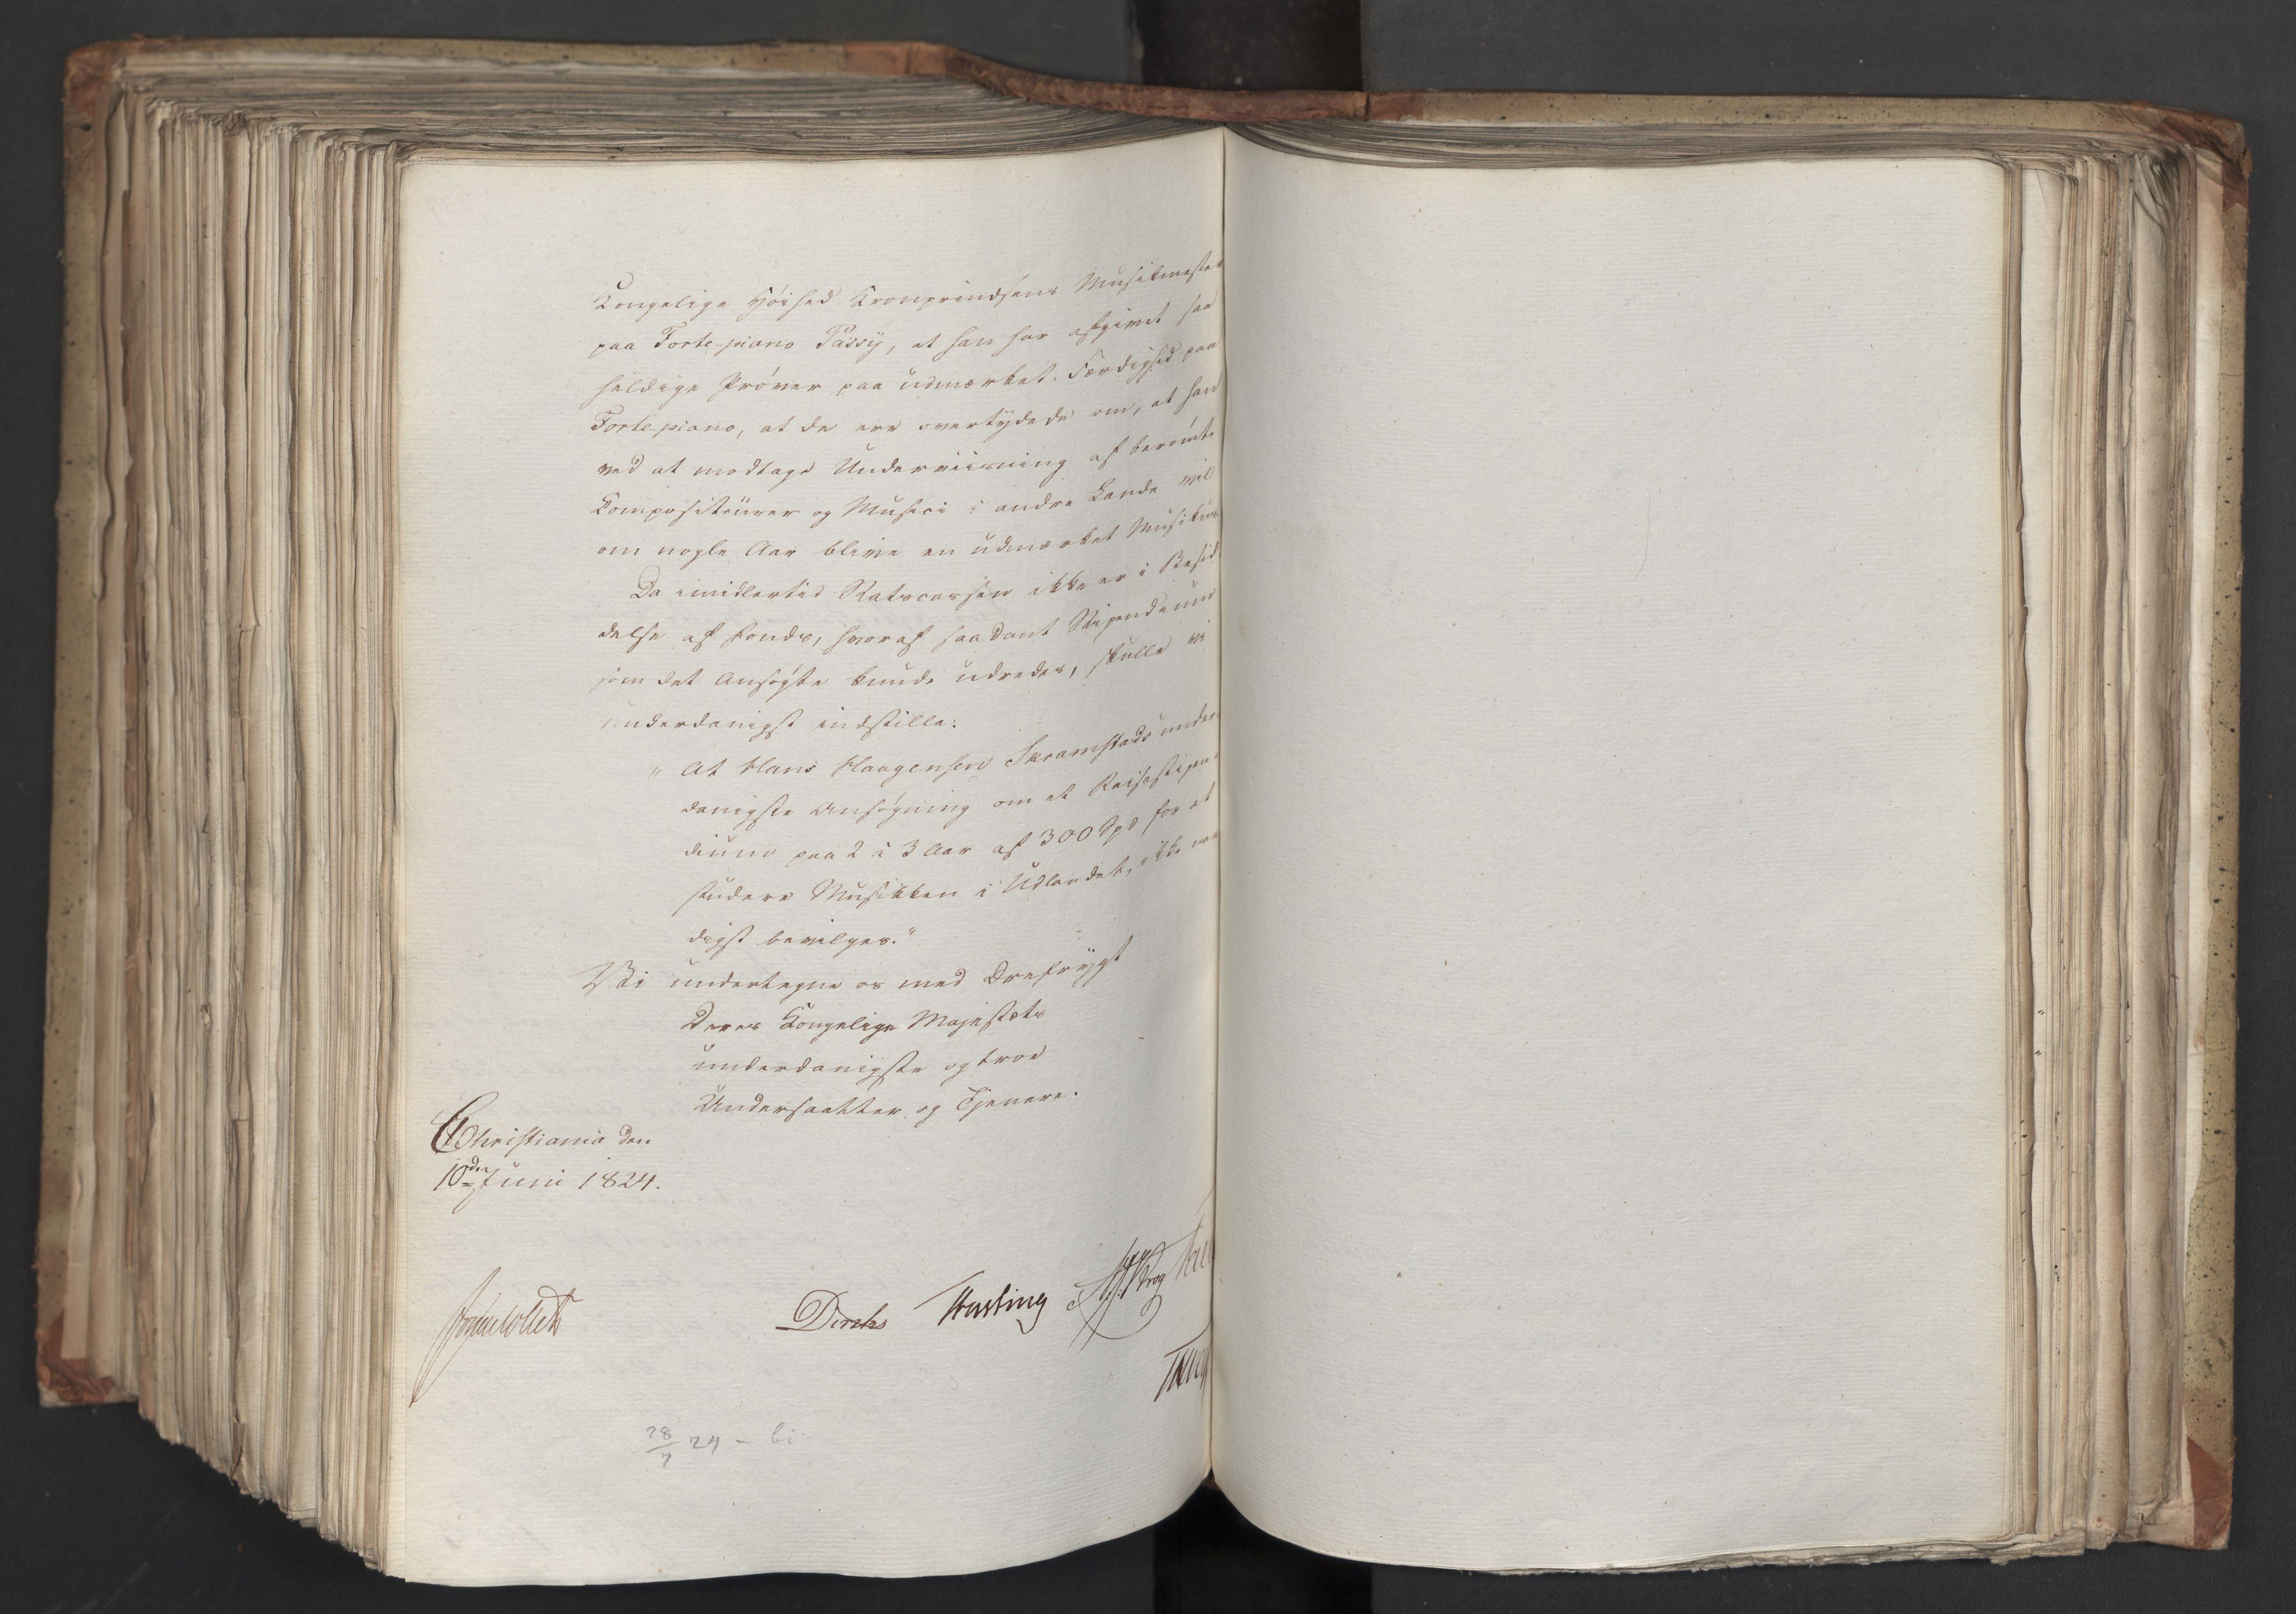 Kongelige Høihed Kronprindsens Musikmester
paa Forte-piano Passy, at han har afgivet saa
heldige Prøver paa udmærket Færdighed paa
Fortepiano, at de ere overtydede om, at han
ved at modtage Underviisning af berømte
Compositeurer og Musici i andre Lande vil
om nogle Aar blive en udmærket Musikus
Da imidlertid Statscassen ikke er i Besid
delse af Fonds, hvoraf saadant Stipendium
som det Ansøgte kunde udredes, skulle vi
underdanigst indstille:
" At Hans Haagensen Skramstads under
danigste Ansøgning om et Reisestipen
dium paa 2 à 3 Aar af 300 Spd for at
studere Musikken i Udlandet, ikke naa
digst bevilges."
Vi undertegne os med Dyb frygt
Deres Kongelige Majestæts
underdanigste og troe
Undersaatter og Tjenere.
Christiania den
10de Juni 1824.
Diriks Hasting Krog
28/7 24 - bi